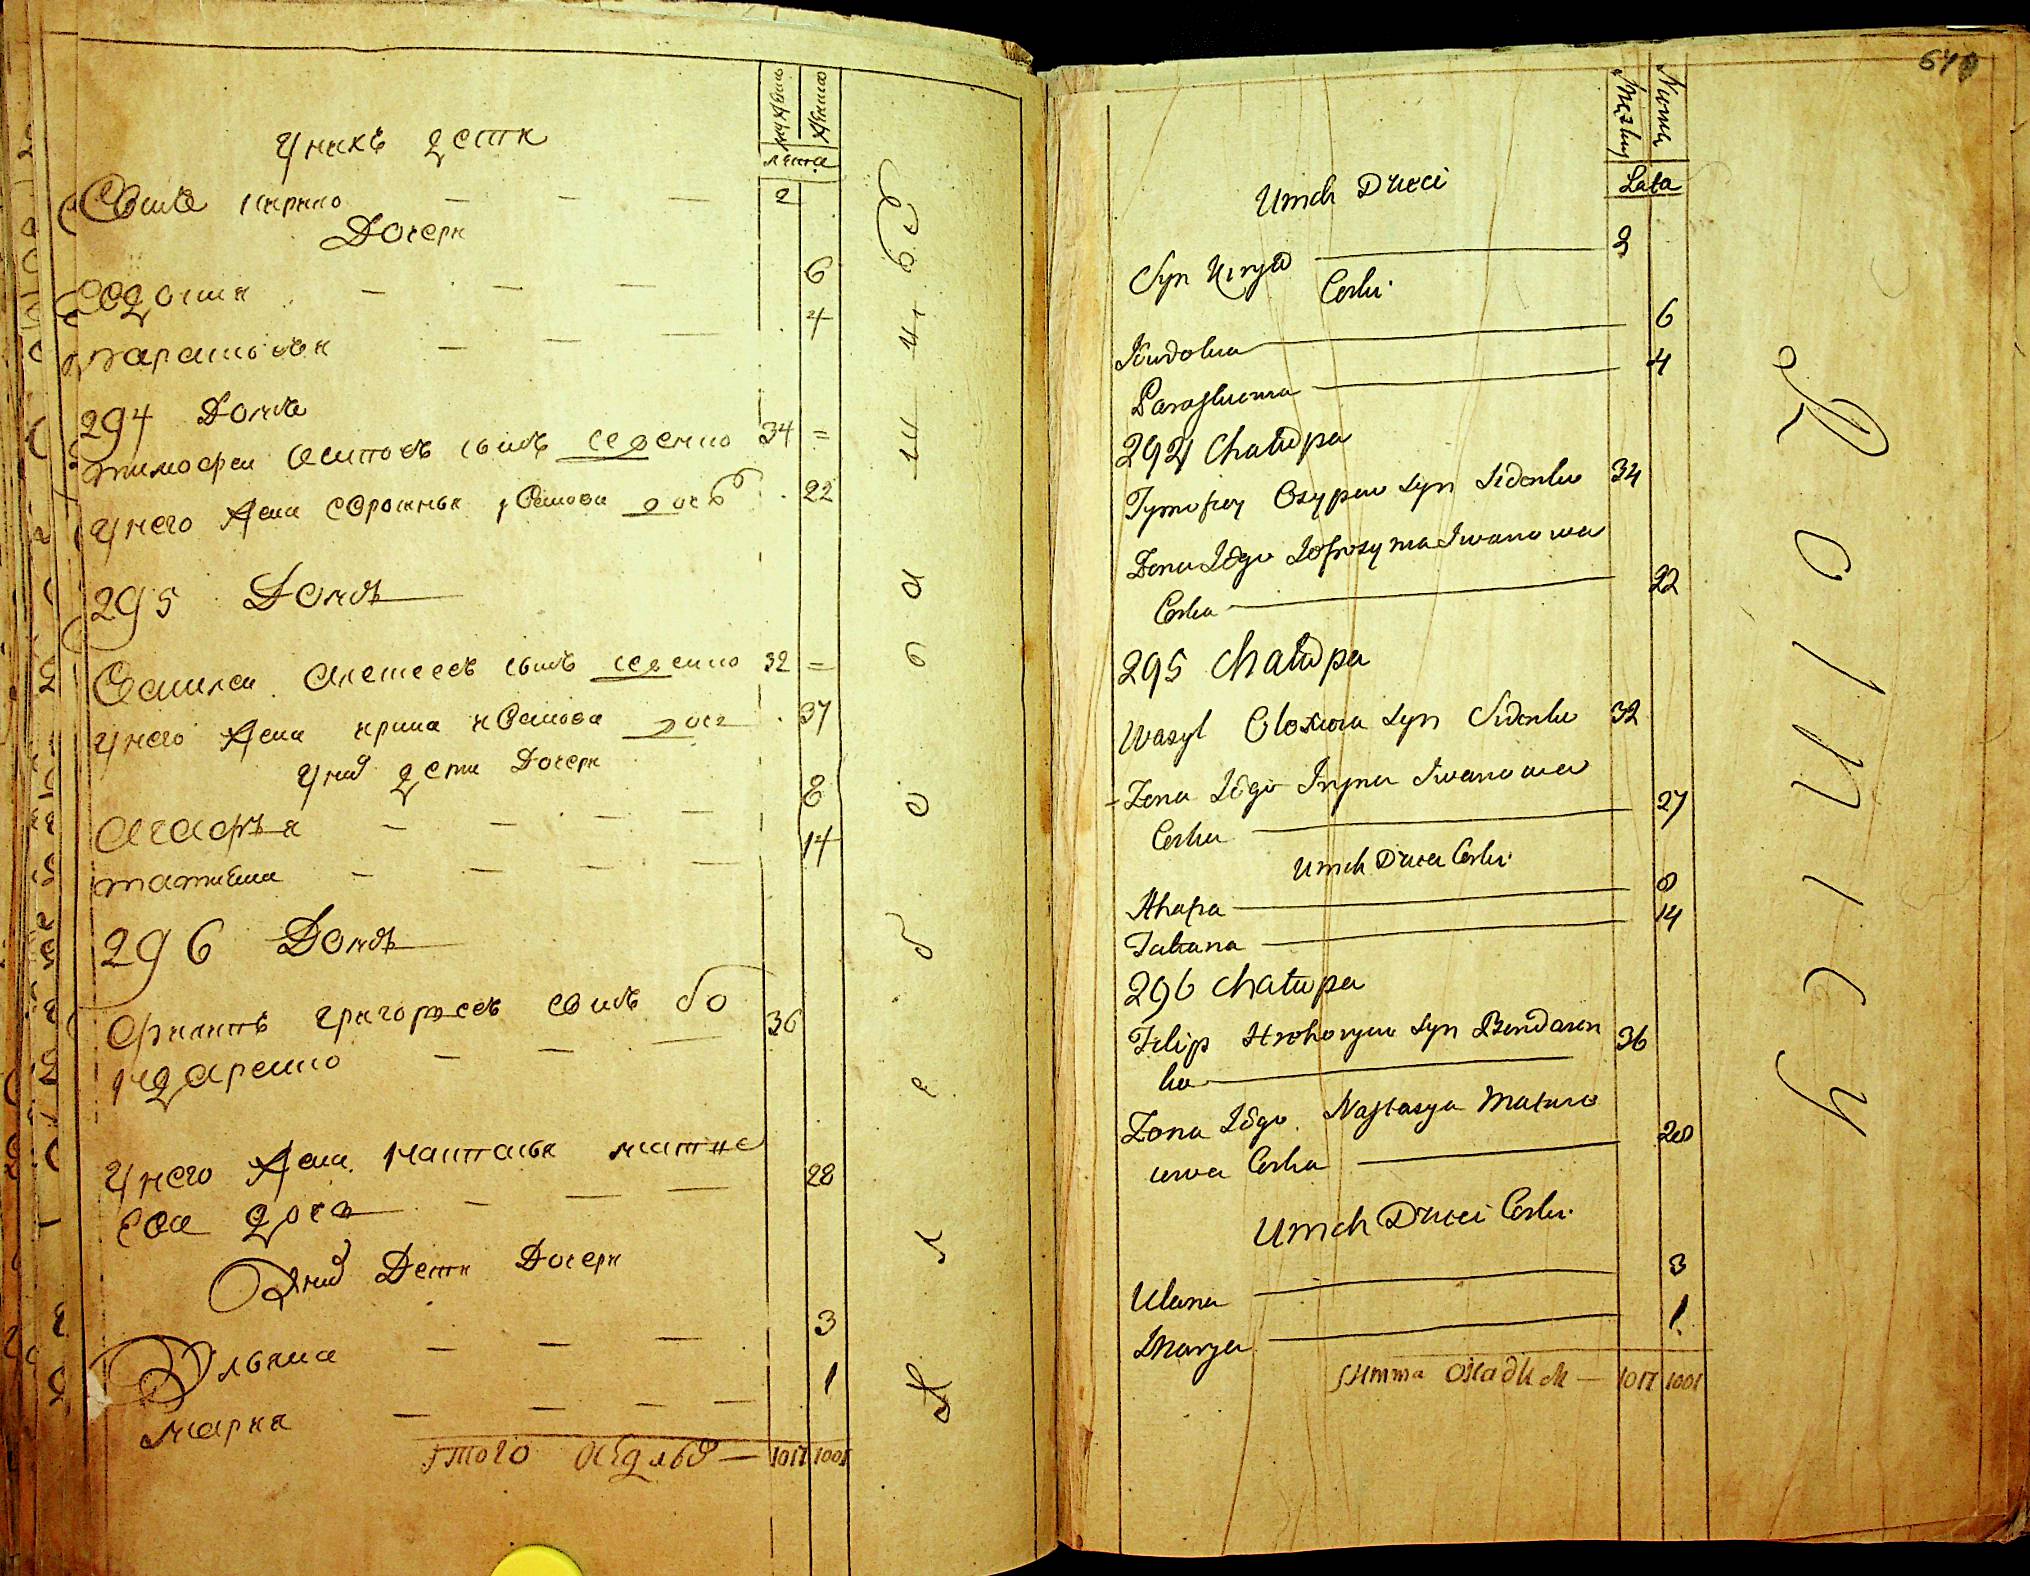 мужеска
женска
лета
У нихъ дети
Сынъ кирило 2
Дочери
Евдокия 6
параскевия 4
294 Домъ
тимофеи осиповъ сынъ 34
У него жена ефросинья иванова 22
295 Домъ
Василеи алексеевъ сынъ 32
У него жена ирина иванова 37
У них дети Дочери
агафья 8
татияна 14
296 Домъ
филипъ григорьевъ сынъ бо
ндаренко 36
У него жена настасья матве
ева дочь 28
У них Дети Дочери
Ульяна 3
марья 1
Итого 1017 1001
641
Męzkey
Niewia
Lata
U nich Dzieci
Syn Kiryło 2
Corki
Jewdokia 6
Paraskiewia 4
294 Chałupa
Tymofiey Osypow syn Sidenko 34
Zona Jego Jefrosyna Iwanowa
Corka 22
295 Chałupa
Wasyl Olexiow syn Sidenko 32
Zona Jego Iryna Iwanowa
Corka 27
U nich Dzieci Corki
Ahafia 8
Tatiana 14
296 Chałupa
Filip Hrehoryew syn Bondaren
ko 36
Zona Jego Nastasya Matwie
iewa Corka 28
U nich Dzieci Corki
Ulana 3
Marya 1
Summa 1017 1001
Rolnicy